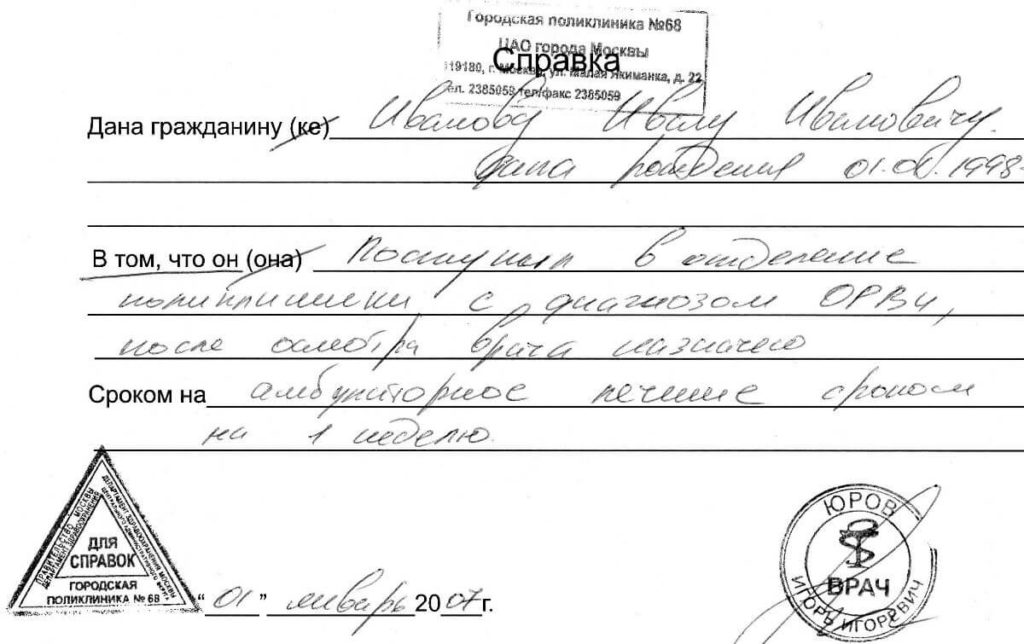 Городская поликлиника №68
ЦАО города Москвы
Справка
119180, г. Москва, ул. Малая Якиманка, д. 22
тел. 2385059 тел/факс 2385059
Дана гражданину (ке) Иванову Ивану Ивановичу.
дата рождения 01.01.1998
В том, что он (она) поступил в отделение
поликлиники с диагнозом ОРВИ,
после осмотра врача назначено
Сроком на амбулаторное лечение сроком
на 1 неделю.
ПРАВИТЕЛЬСТВО МОСКВЫ
ДЕПАРТАМЕНТ ЗДРАВООХРАНЕНИЯ
ДЛЯ
СПРАВОК
ГОРОДСКАЯ
ПОЛИКЛИНИКА № 68
"01" январь 2007г.
ЮРОВ
ВРАЧ
ИГОРЬ ИГОРЕВИЧ